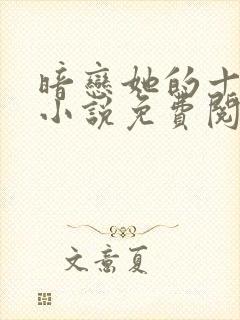 暗戀她的十
小說免費閱
文意夏